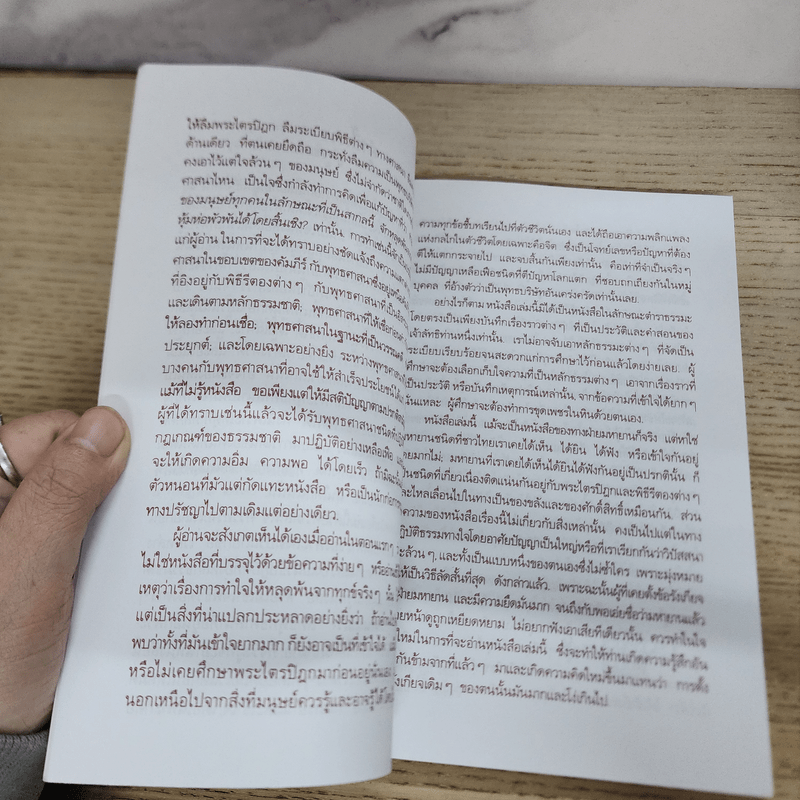 ให้ลืมพระไตรปิฎก ลืมระเบียบพิธีต่างๆ ทางศาสนา
ด้านเดียว ที่ตนเคยยึดถือ กระทั่งลืมความเป็นพุทธบริษัท
คงเอาไว้แต่ใจล้วนๆ ของมนุษย์ ซึ่งไม่จำกัดว่า
ศาสนาไหน เป็นใจซึ่งกำลังทำการคิดเพื่อแก้ปัญหา
ของมนุษย์ทุกคนในลักษณะที่เป็นสากลนี้ จักหลุดพ้น
หุ้มห่อพัวพันได้โดยสิ้นเชิง? เท่านั้น. การทำเช่นนี้
แก่ผู้อ่าน ในการที่จะได้ทราบอย่างชัดแจ้งถึงความ
ศาสนาในขอบเขตของคัมภีร์ กับพุทธศาสนาซึ่งอยู่เหนือ
ที่อิงอยู่กับพิธีรีตองต่างๆ กับพุทธศาสนาที่เป็นอิสระ
และเดินตามหลักธรรมชาติ; พุทธศาสนาที่ให้เชื่อก่อน
ให้ลองทำก่อนเชื่อ; พุทธศาสนาในฐานะที่เป็นวรรณคดี
ประยุกต์; และโดยเฉพาะอย่างยิ่ง ระหว่างพุทธศาสนา
บางคนกับพุทธศาสนาที่อาจใช้ให้สำเร็จประโยชน์ได้
แม้ที่ไม่รู้หนังสือ ขอเพียงแต่ให้มีสติปัญญาตามปรกติ
ผู้ที่ได้ทราบเช่นนี้แล้วจะได้รับพุทธศาสนาชนิดที่
กฎเกณฑ์ของธรรมชาติ มาปฏิบัติอย่างเหลือเฟือ
จะให้เกิดความอิ่ม ความพอ ได้โดยเร็ว ถ้ามิฉะนั้น
ตัวหนอนที่มัวแต่กัดแทะหนังสือ หรือเป็นนัก
ทางปรัชญาไปตามเดิมแต่อย่างเดียว.
ผู้อ่านจะสังเกตเห็นได้เองเมื่ออ่านในตอนแรกๆ
ไม่ใช่หนังสือที่บรรจุไว้ด้วยข้อความที่ง่ายๆ หรือ
เหตุว่าเรื่องการทำใจให้หลุดพ้นจากทุกข์จริงๆ นั้น
แต่เป็นสิ่งที่น่าแปลกประหลาดอย่างยิ่งว่า ถ้าอ่าน
พบว่าทั้งที่มันเข้าใจยากมาก ก็ยังอาจเป็นที่เข้าใจได้
หรือไม่เคยศึกษาพระไตรปิฎกมาก่อนอยู่นั่นเอง
นอกเหนือไปจากสิ่งที่มนุษย์ควรรู้และอาจรู้ได้
ความทุกข้อชี้บทเรียนไปที่ตัวชีวิตนั่นเอง และได้ถือเอาความพลิกแพลง
แห่งกลไกในตัวชีวิตโดยเฉพาะคือจิต ซึ่งเป็นโจทย์เลขหรือปัญหาที่ต้อง
ให้แตกกระจายไป และจบสิ้นกันเพียงเท่านั้น คือเท่าที่จำเป็นจริงๆ
ไม่มีปัญญาเหลือเฟือชนิดที่ตีปัญหาโลกแตก ที่ชอบถกเถียงกันในหมู่
บุคคล ที่อ้างตัวว่าเป็นพุทธบริษัทอันเคร่งครัดเท่านั้นเลย.
อย่างไรก็ตาม หนังสือเล่มนี้มิได้เป็นหนังสือในลักษณะตำราธรรมะ
โดยตรงเป็นเพียงบันทึกเรื่องราวต่างๆ ที่เป็นประวัติ และคำสอนของ
ท่านหนึ่งเท่านั้น เราไม่อาจจับเอาหลักธรรมะต่างๆ ที่จัดเป็น
ระเบียบเรียบร้อยจนสะดวกแก่การศึกษาไว้ก่อนแล้วโดยง่ายเลย. ผู้
ศึกษาจะต้องเลือกเก็บใจความที่เป็นหลักธรรมต่างๆ เอาจากเรื่องราวที่
เป็นประวัติ หรือบันทึกเหตุการณ์เหล่านั้น, จากข้อความที่เข้าใจได้ยากๆ
นั่นแหละ ผู้ศึกษาจะต้องทำการขุดเพชรในหินด้วยตนเอง.
หนังสือเล่มนี้ แม้จะเป็นหนังสือของทางฝ่ายมหายานก็จริง แต่หาใช่
มหายานชนิดที่ชาวไทยเราเคยได้เห็น ได้ยิน ได้ฟัง หรือเข้าใจกันอยู่
โดยมากไม่. มหายานที่เราเคยได้เห็นได้ยินได้ฟังกันอยู่เป็นปรกตินั้น ก็
เป็นชนิดที่เกี่ยวเนื่องติดแน่นกันอยู่กับพระไตรปิฎกและพิธีรีตองต่างๆ
และไหลเลื่อนไปในทางเป็นของขลังและของศักดิ์สิทธิ์เหมือนกัน. ส่วน
ความของหนังสือเรื่องนี้ไม่เกี่ยวกับสิ่งเหล่านั้น คงเป็นไปแต่ในทาง
ปฏิบัติธรรมทางใจโดยอาศัยปัญญาเป็นใหญ่หรือที่เราเรียกกันว่าวิปัสสนา
ธุระล้วนๆ, และทั้งเป็นแบบหนึ่งของตนเองซึ่งไม่ซ้ำใคร เพราะมุ่งหมาย
ให้เป็นวิธีลัดสั้นที่สุด ดังกล่าวแล้ว. เพราะฉะนั้นผู้ที่เคยตั้งข้อรังเกียจ
ฝ่ายมหายาน และมีความยึดมั่นมาก จนถึงกับพอเอ่ยชื่อว่ามหายานแล้ว
ก็เบือนหน้าดูถูกเหยียดหยาม ไม่อยากฟังเอาเสียทีเดียวนั้น ควรทำในใจ
ใหม่ในการที่จะอ่านหนังสือเล่มนี้ ซึ่งจะทำให้ท่านเกิดความรู้สึกอัน
กันข้ามจากที่แล้วๆ มาและเกิดความคิดใหม่ขึ้นมาแทนว่า การตั้ง
รังเกียจเดิมๆ ของตนนั้นมันมากและโง่เกินไป.